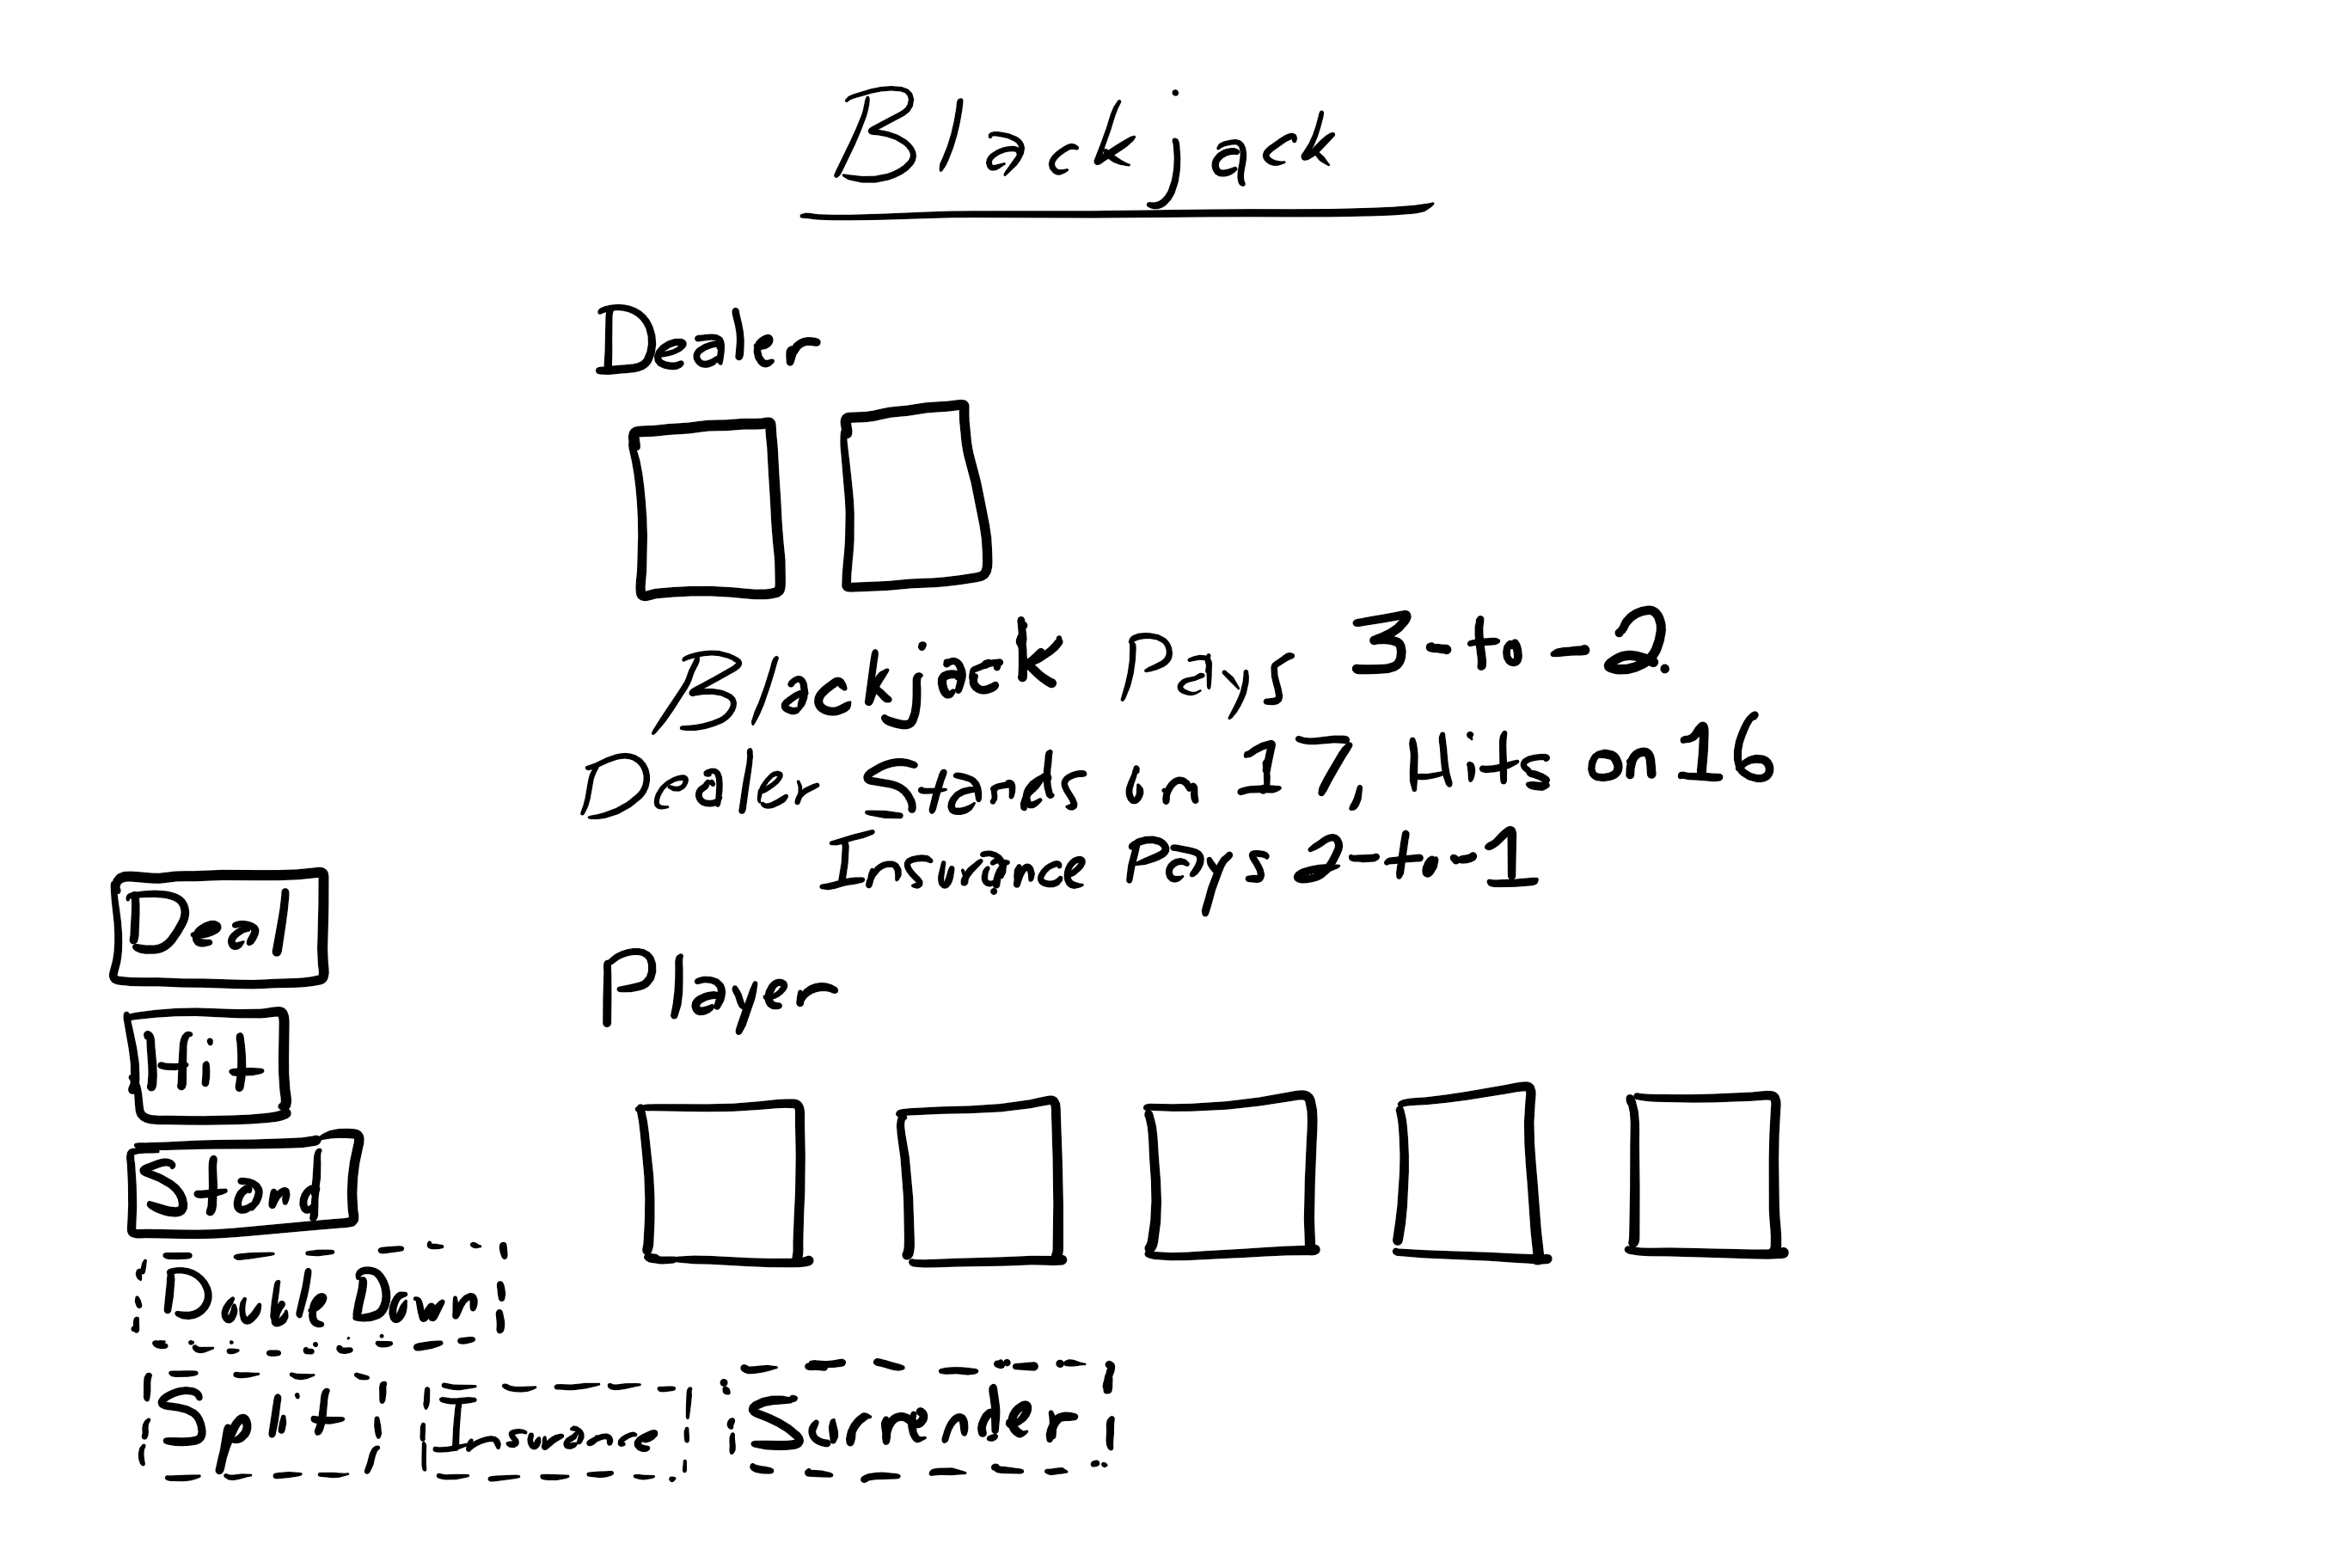 Blackjack
Dealer
Blackjack Pays 3-to-2.
Dealer Stands on 17, Hits on 16
Insurance Pays 2-to-1
Deal
Player
Hit
Stand
Double Down
Split Insurance Surrender